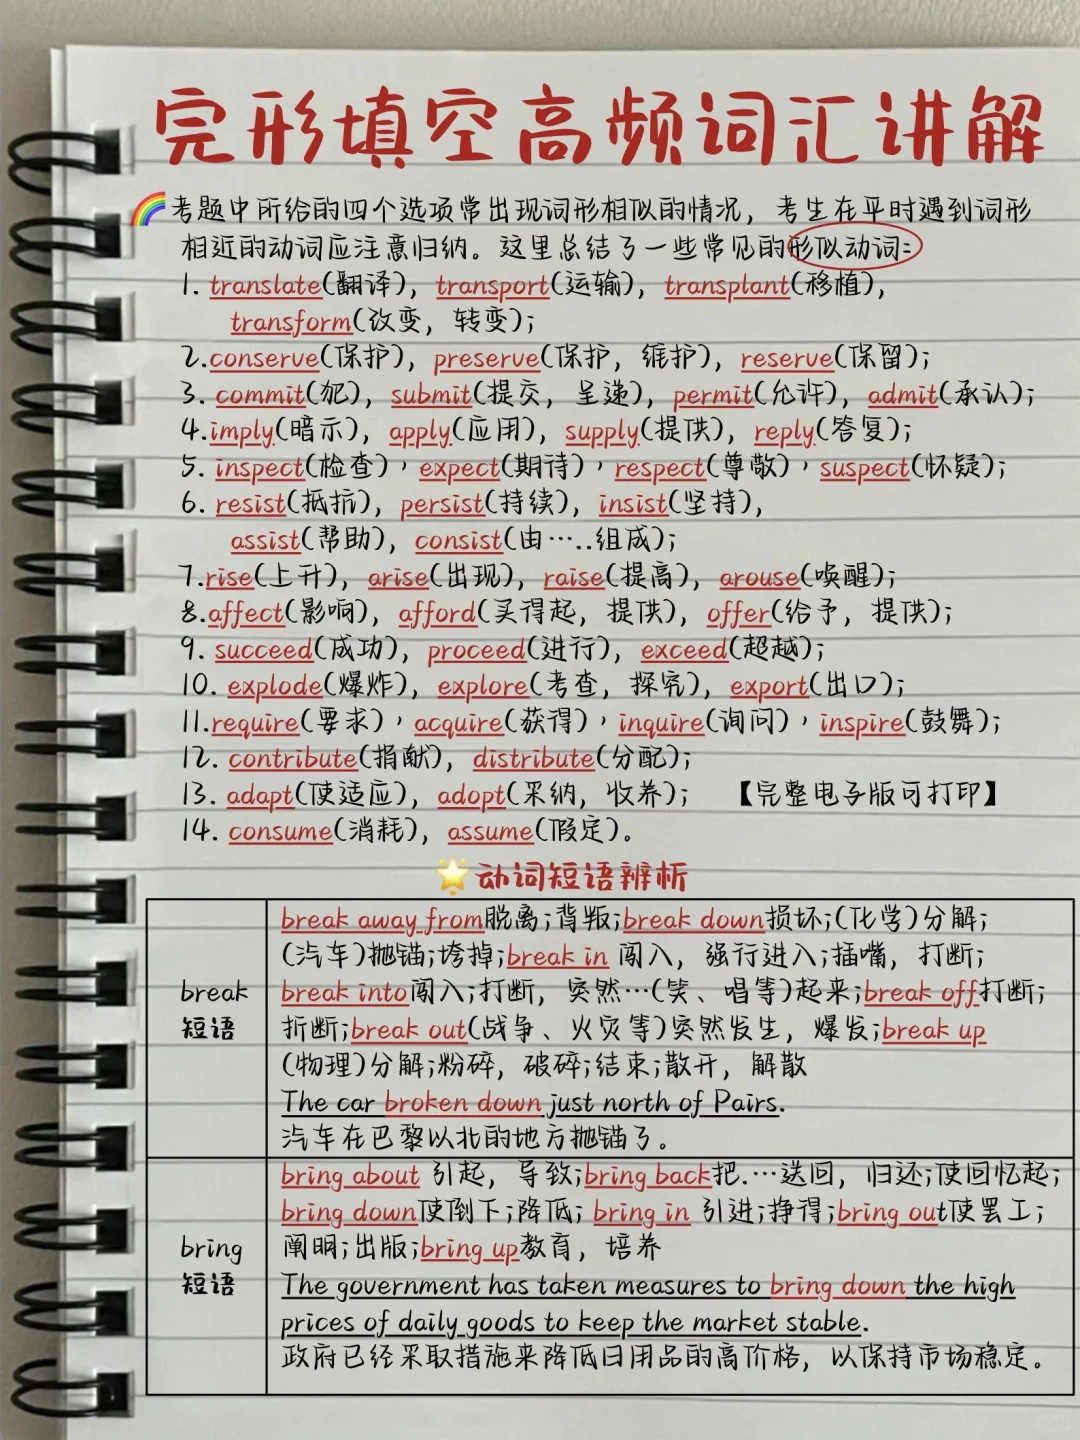 完形填空高频词汇讲解
考题中所给的四个选项常出现词形相似的情况，考生在平时遇到词形
相近的动词应注意归纳。这里总结了一些常见的形似动词:
1. translate(翻译)，transport(运输)，transplant(移植)，
transform(改变，转变);
2.conserve(保护)，preserve(保护，维护)，reserve(保留);
3. commit(犯)，submit(提交，呈递)，permit(允许)，admit(承认);
4.imply(暗示)，apply(应用)，supply(提供)，reply(答复);
5. inspect(检查)，expect(期待)，respect(尊敬)，suspect(怀疑);
6. resist(抵抗)，persist(持续)，insist(坚持)，
assist(帮助)，consist(由…..组成);
7.rise(上升)，arise(出现)，raise(提高)，arouse(唤醒);
8.affect(影响)，afford(买得起，提供)，offer(给予，提供);
9. succeed(成功)，proceed(进行)，exceed(超越);
10. explode(爆炸)，explore(考查，探究)，export(出口);
11.require(要求)，acquire(获得)，inquire(询问)，inspire(鼓舞);
12. contribute(捐献)，distribute(分配);
13. adapt(使适应)，adopt(采纳，收养); 【完整电子版可打印】
14. consume(消耗)，assume(假定)。
动词短语辨析
break away from脱离;背叛;break down损坏;(化学)分解;
(汽车)抛锚;垮掉;break in 闯入，强行进入;插嘴，打断;
break into闯入;打断，突然…(笑、唱等)起来;break off打断;
break
短语
折断;break out(战争、火灾等)突然发生，爆发;break up
(物理)分解;粉碎，破碎;结束;散开，解散
The car broken down just north of Pairs.
汽车在巴黎以北的地方抛锚了。
bring about 引起，导致;bring back把.…送回，归还;使回忆起;
bring down使倒下;降低; bring in 引进;挣得;bring out使罢工;
bring
短语
阐明;出版;bring up教育，培养
The government has taken measures to bring down the high
prices of daily goods to keep the market stable.
政府已经采取措施来降低日用品的高价格，以保持市场稳定。